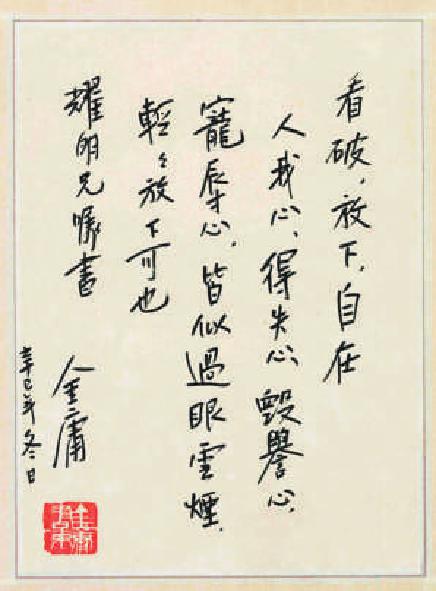 看破，放下，自在
人我心、得失心、毀譽心、
寵辱心，皆似過眼雲煙，
輕輕放下可也
耀明兄囑書
金庸
辛巳年冬日